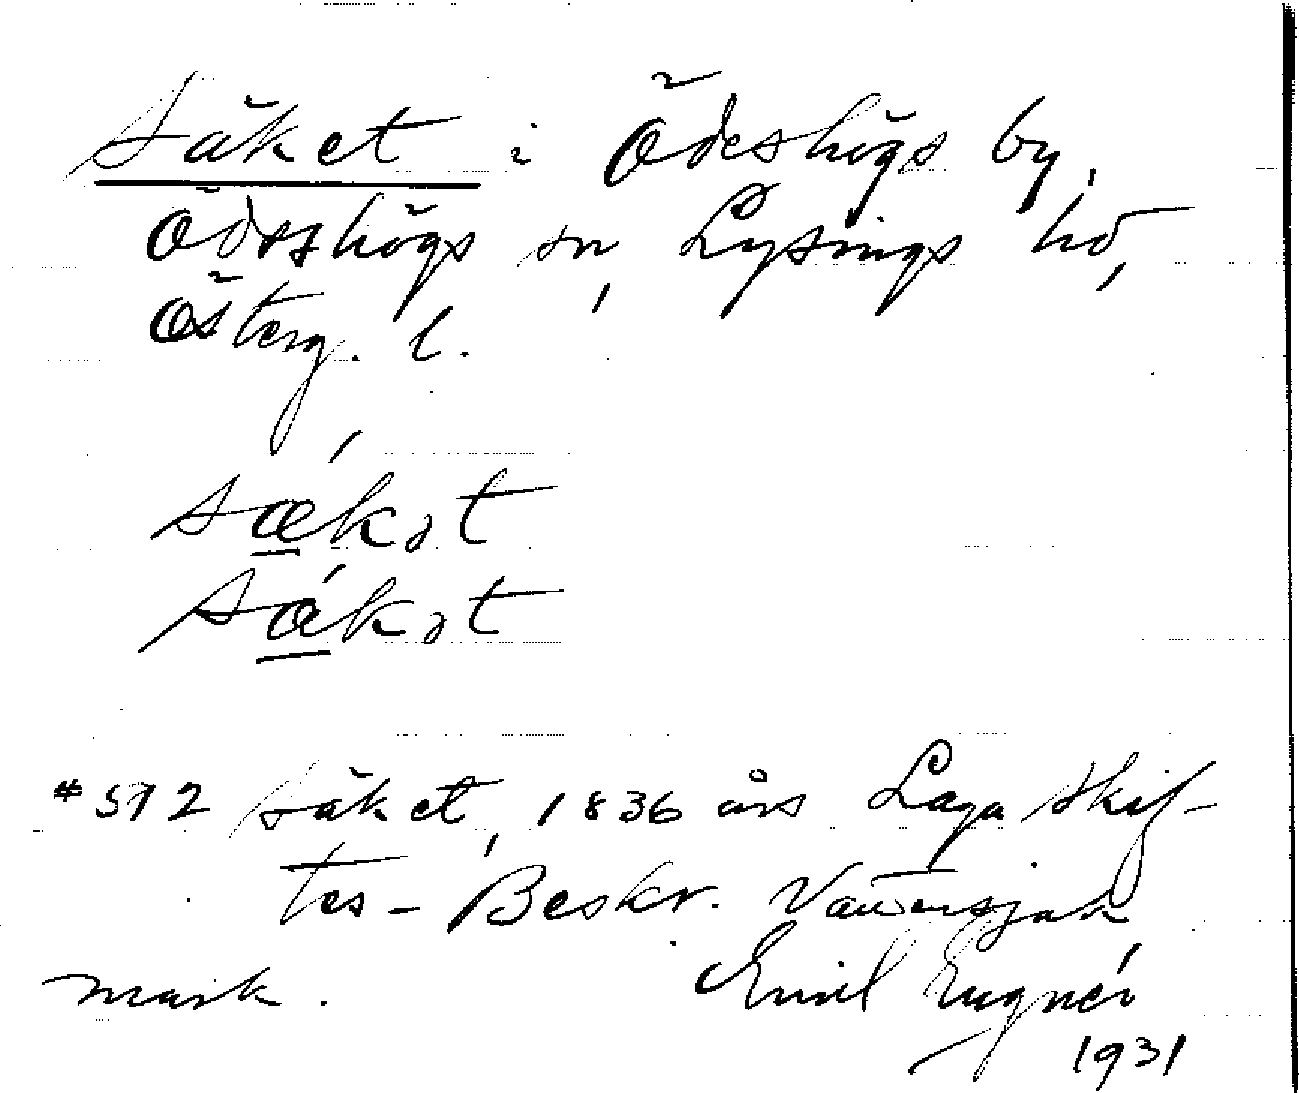 Säket i Ödeshögs by,
Ödeshögs sn, Lysings hd,
Österg. l.
sækət
sákət
#592 Säket, 1836 års Laga skif-
tes-Beskr.
mark. Emil Eugnér
1931